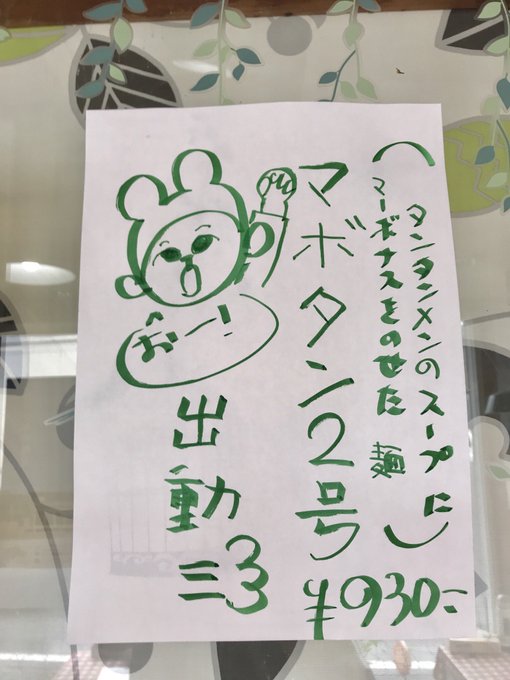 (タンタンメンのスープに
マーボナスをのせた 麺)
マボタン2号
¥930-
おー!
出動